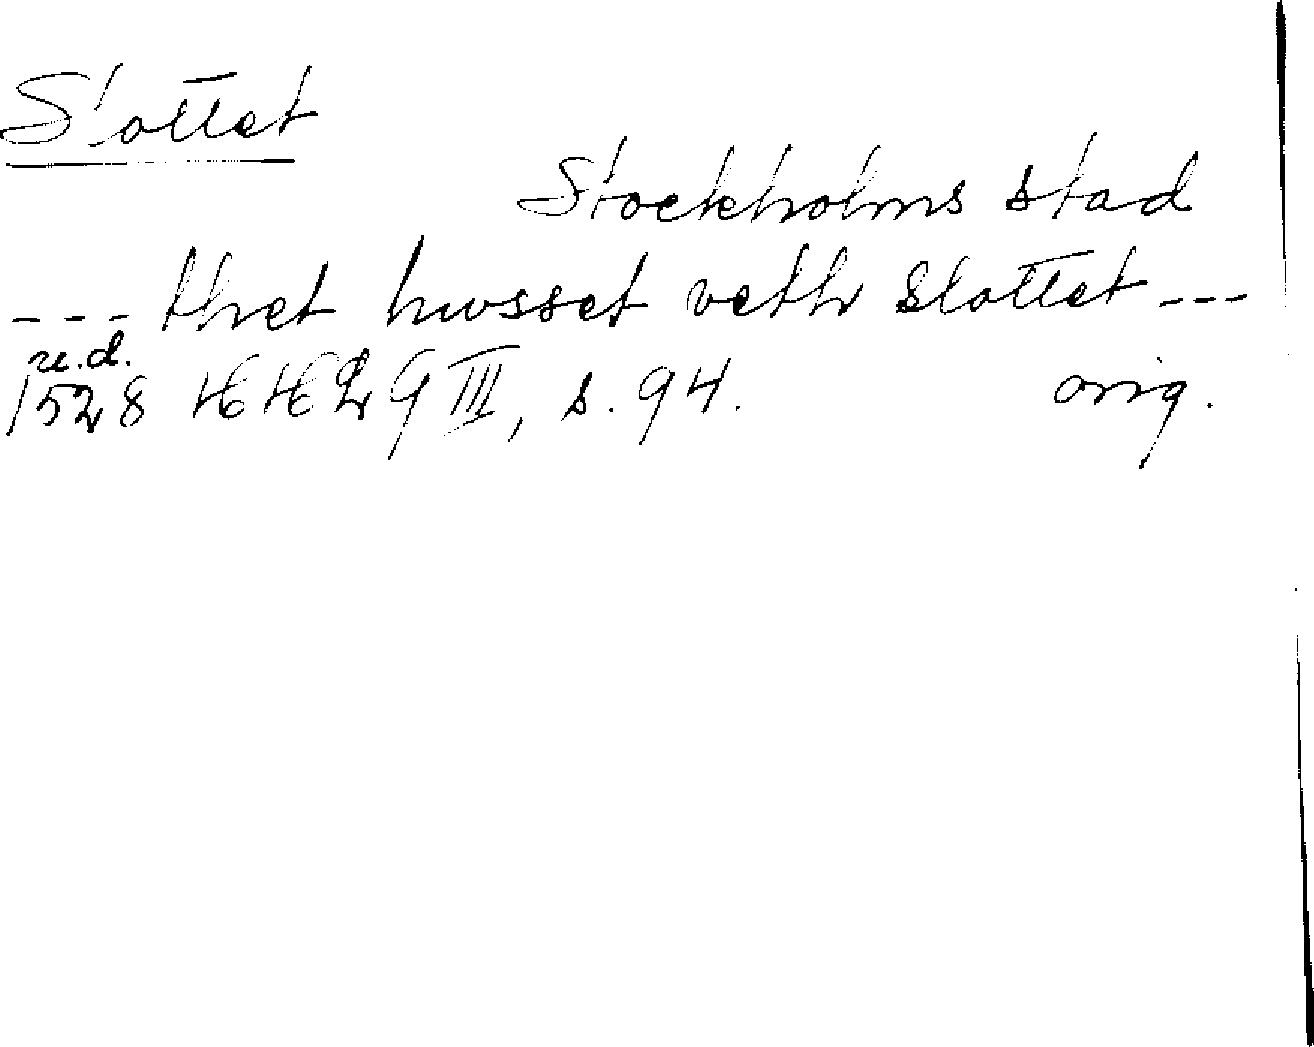 Slottet
Stockholms stad
--- thet husset veth slottet ---
u.d.
1528 HH 2 9 III, s. 94. orig.